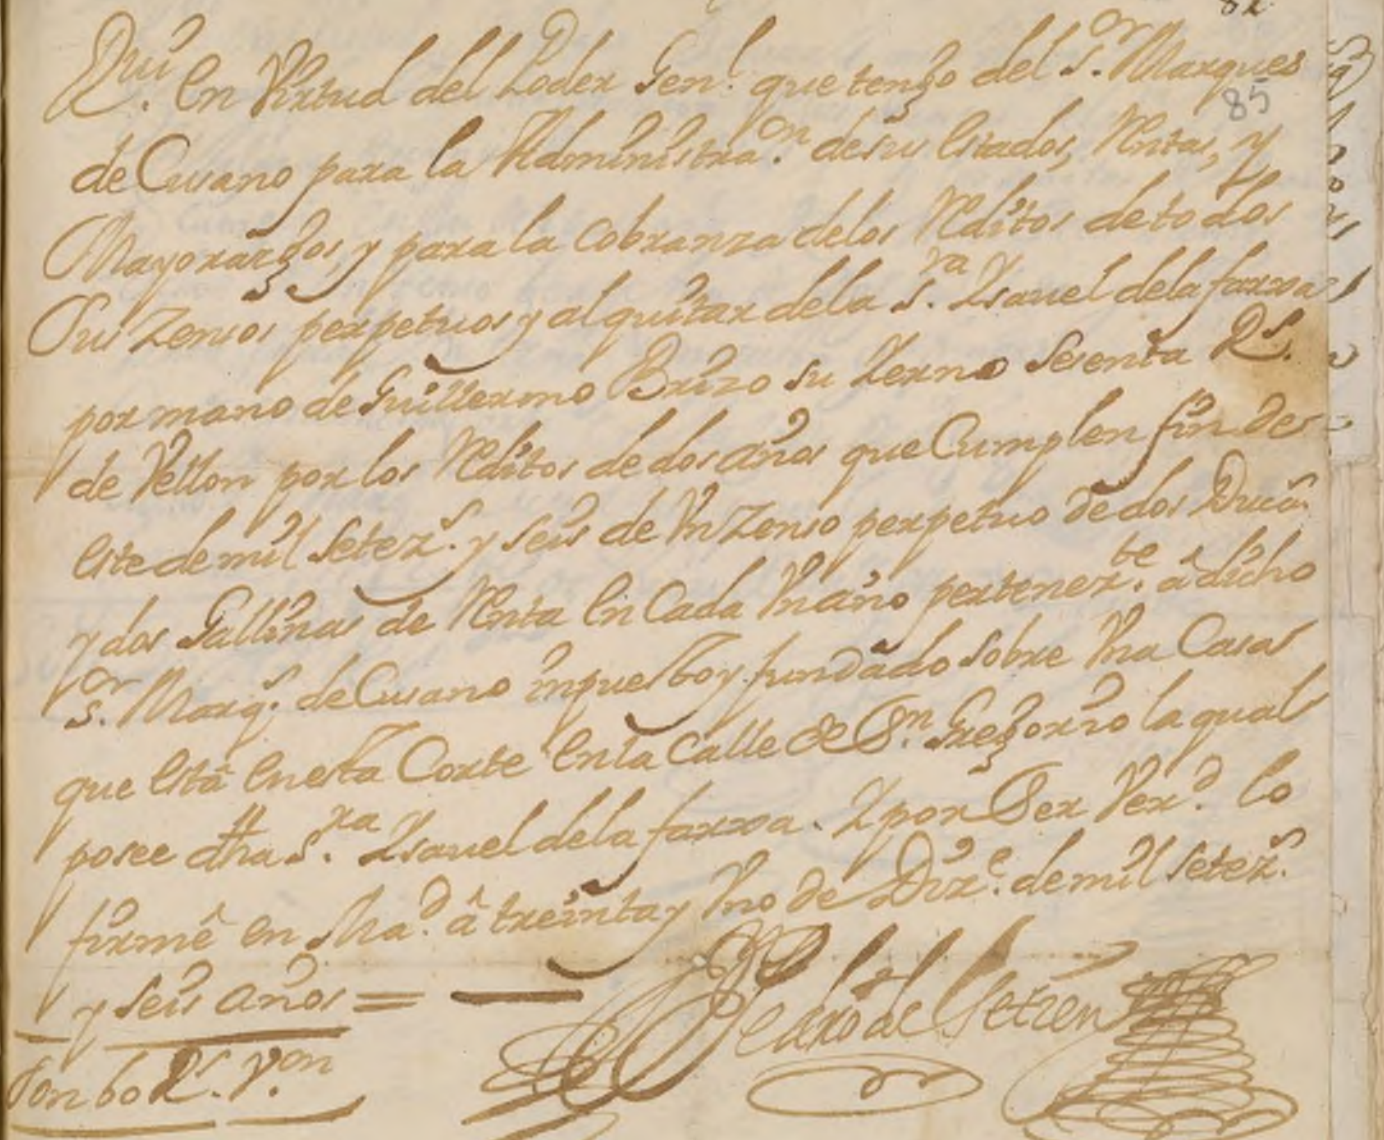 82
85
Rvi. En Virtud del Poder Genl. que tengo del s.or Marques
de Cusano para la Administra.on de sus estados, Rentas, y
Mayorazgos, y para la cobranza delos Reditos de todos
sus Zensos perpetuos y al quitar dela s.ra Ysavel dela farxa
por mano de Guillermo Brizo su Yerno Sesenta Rs.
de Vellon por los Reditos de dos años que Cumplen fin des
este de mil Setezs. y seis de Vn Zenso perpetuo de dos Ducs.
y dos Gallinas de Renta en Cada Vn año pertenez.te â dicho
s.or Marqs. de Cusano inpuesto y fundado sobre Vna Casas
que estâ en esta Corte en la Calle de Sn. Gregorio la qual
posee dha s.ra Ysavel dela farxa. Y por Ser Verd. lo
firmê en Mad. â treinta y Vno de Dize. de mil setezs.
y seis años =
Son 60 Rs. Von
Pedro de